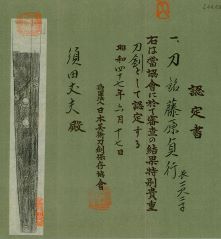 認定書
一、刀 銘 藤原貞行 長二尺三寸
右は當協會に於て審査の結果特別貴重
刀劍として認定する
昭和四十七年六月十七日
財團法人日本美術刀劍保存協會
須田丈夫殿